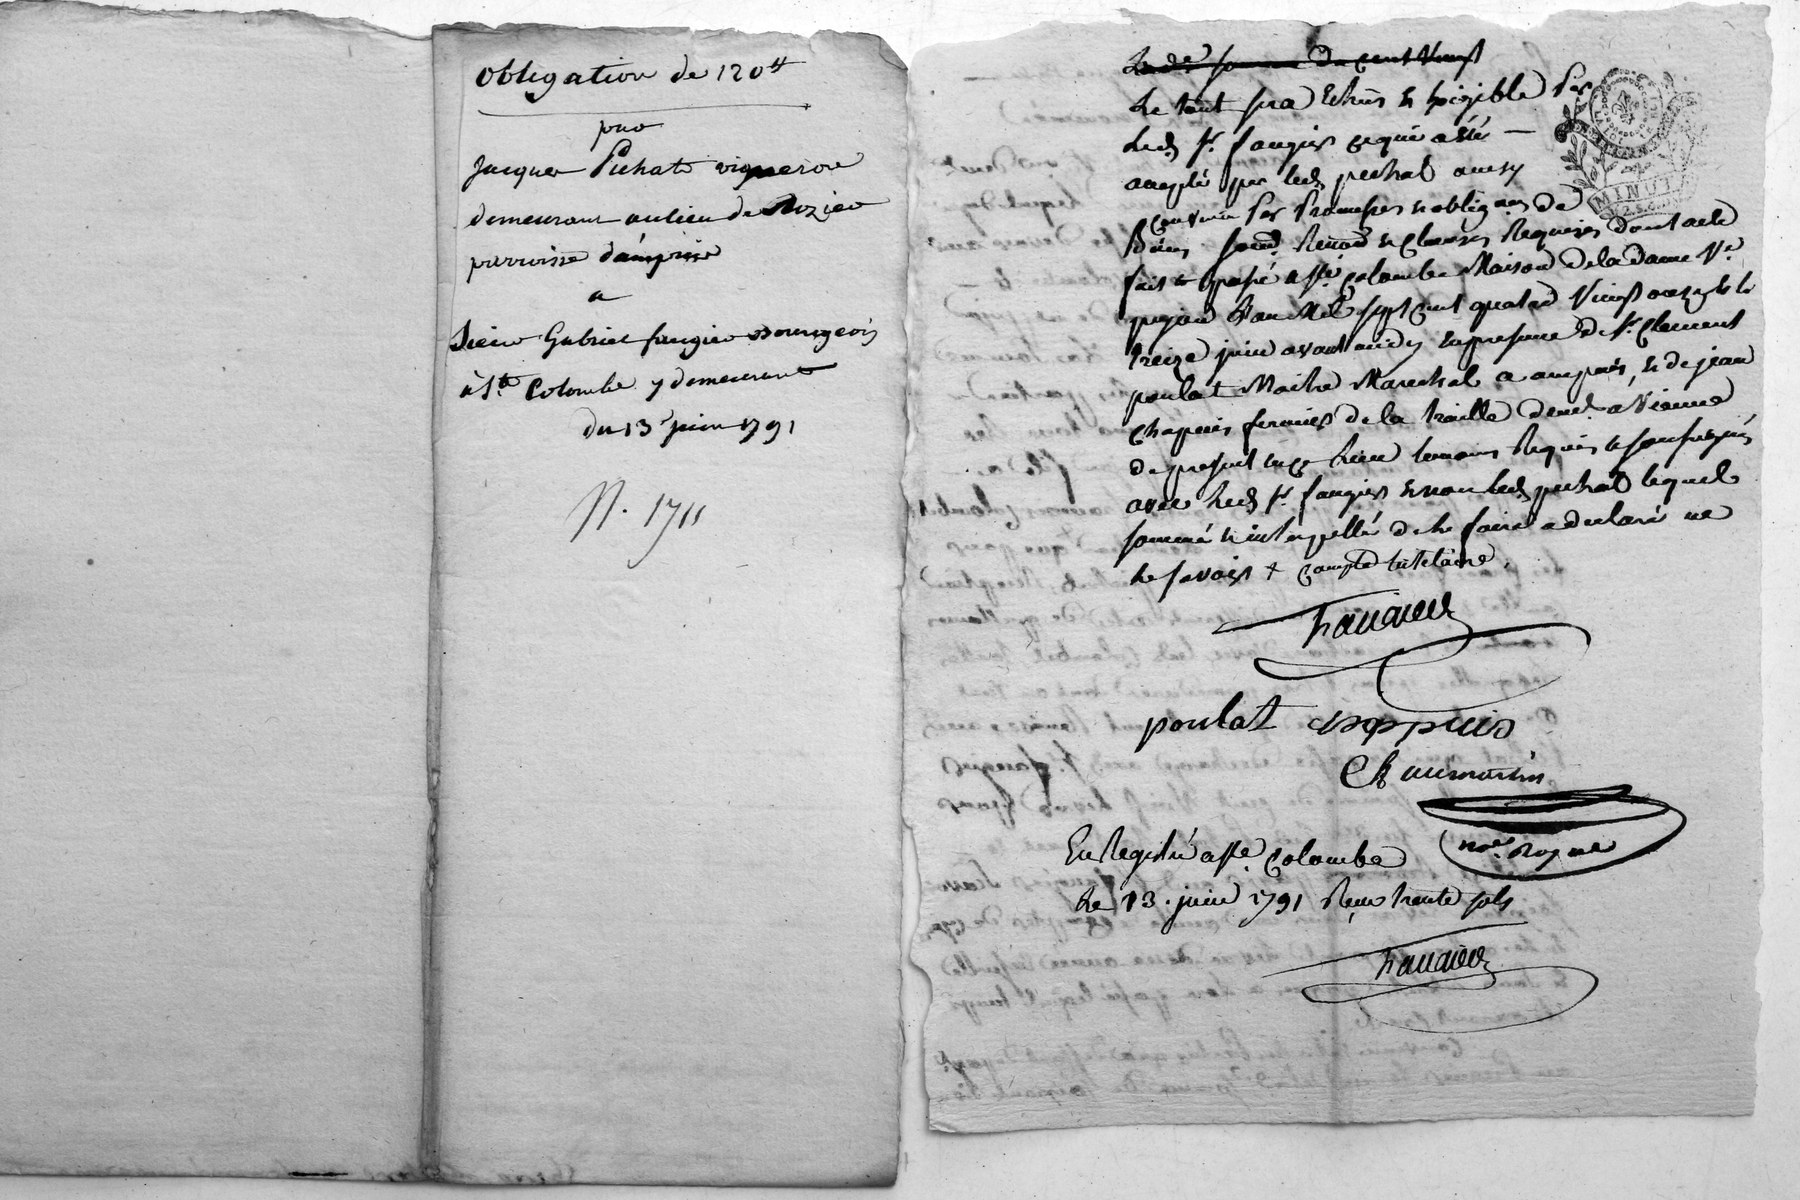 Obligation de 120ᵗᵗ
pour
Jacques Pichat vigneron
demeurant au lieu de Rozier
parroisse d'ampuise
a
Sieur Gabriel faugier Bourgeois
à Sᵗᵉ Colombe y demeurant
du 13 juin 1791
N. 1711
cent Vingt
Le tout sera Echus & Exigible Par
Led. Sʳ. faugier ce qui a été —
accepté par led. pichat ainsy
convenu Par Promesses & obligaons de
Biens Soumd. Renond. & Clauses Requises dont acte
fait & passé a Sᵗᵉ Colombe Maison de la dame Vᵉ.
L'an Mil sept cent quatre Vingt onze & le
treize juin avant midy En presence de Sʳ. Clement
poulat Maitre Marechal a ampuis, & de jean
Chapuis fermier de la traille de a Vienne
de present en ce Lieu temoins Requis & soussignés
avec Led. Sʳ. faugier & non led. pichat lequel
sommé & interpellé de Le faire a declaré ne
Le savoir
faugier
poulat chappuis
Chaumartin
noʳᵉ. Roy
En Registré a Sᵗᵉ. Colombe
Le 13. juin 1791 Reçu trente sols
faugier
MINUT